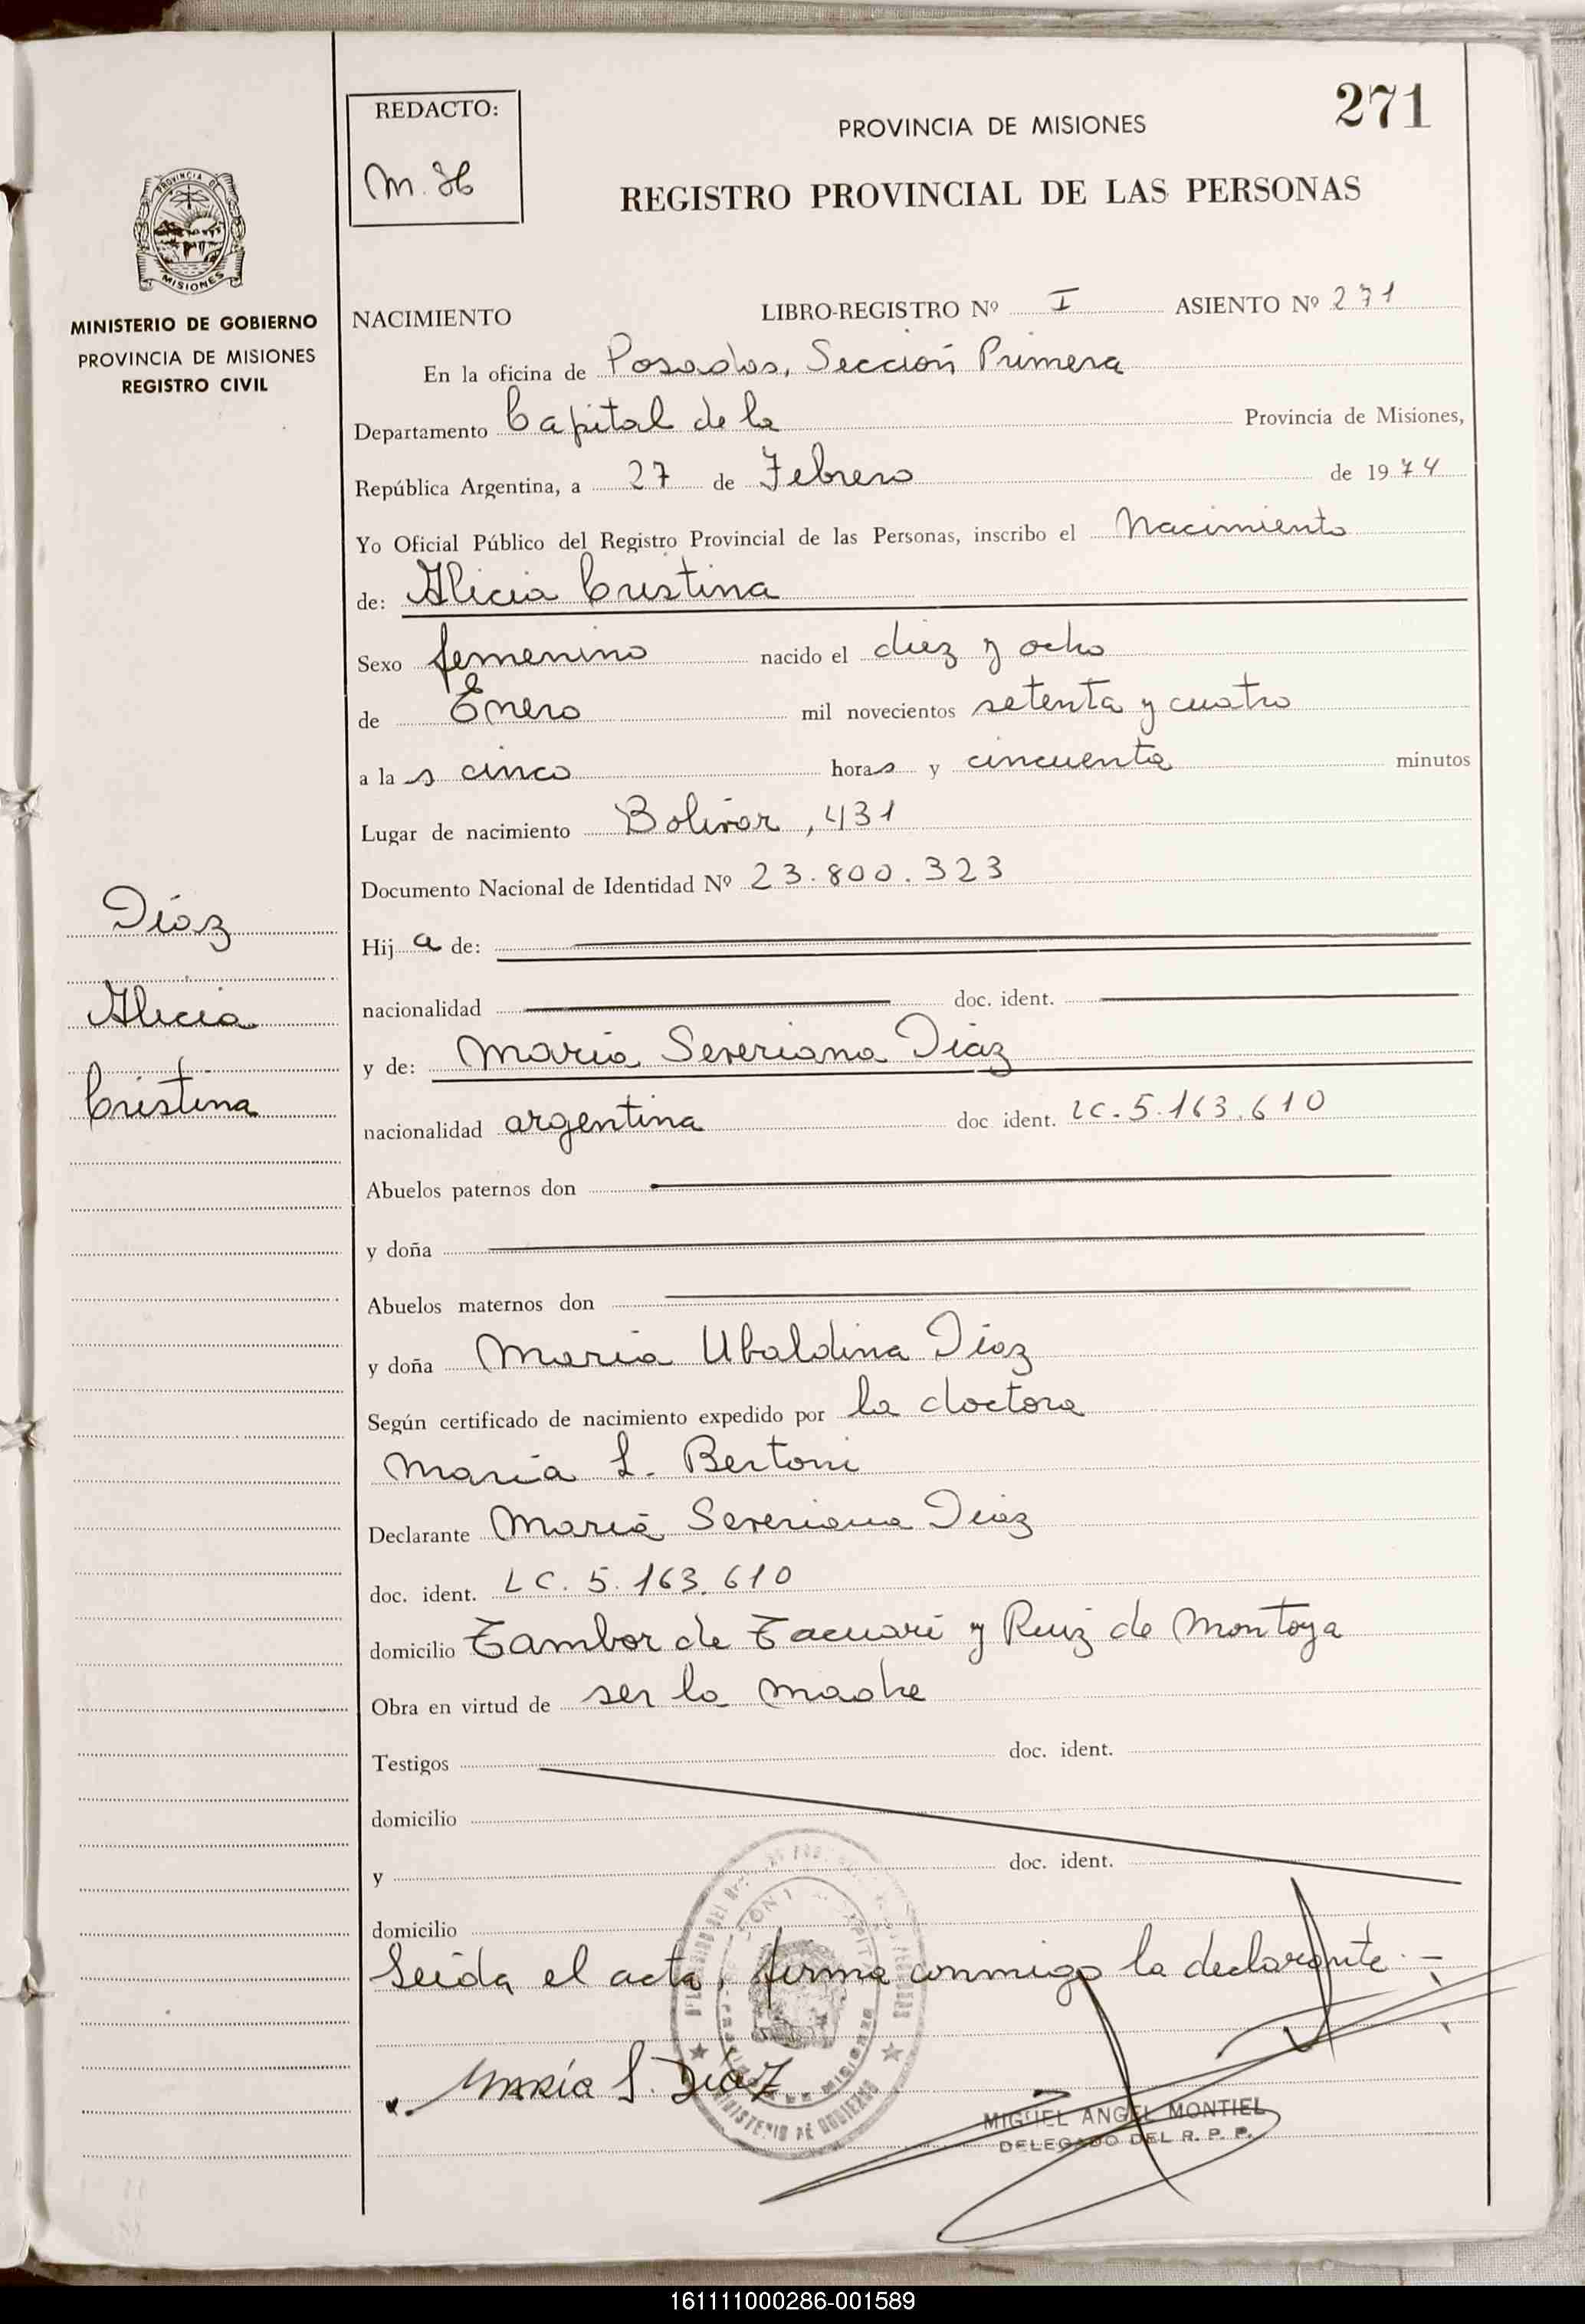 271
REDACTO:
M. H
PROVINCIA DE MISIONES
REGISTRO PROVINCIAL DE LAS PERSONAS
PROVINCIA DE
MISIONES
MINISTERIO DE GOBIERNO
PROVINCIA DE MISIONES
REGISTRO CIVIL
NACIMIENTO LIBRO-REGISTRO Nº I ASIENTO Nº 271
En la oficina de Posadas, Sección Primera
Departamento Capital de la Provincia de Misiones,
República Argentina, a 27 de Febrero de 1974
Yo Oficial Público del Registro Provincial de las Personas, inscribo el Nacimiento
de: Alicia Cristina
Sexo femenino nacido el diez y ocho
de Enero mil novecientos setenta y cuatro
a la s cinco horas y cincuenta minutos
Lugar de nacimiento Bolivar, 431
Documento Nacional de Identidad Nº 23.800.323
Díaz
Alicia
Cristina
Hij a de:
nacionalidad doc. ident.
y de: María Severiana Díaz
nacionalidad argentina doc ident. LC. 5.163.610
Abuelos paternos don
y doña
Abuelos maternos don
y doña María Ubaldina Díaz
Según certificado de nacimiento expedido por la doctora
María L. Bertoni
Declarante María Severiana Díaz
doc. ident. LC. 5.163.610
domicilio Tambor de Tacuarí y Ruiz de Montoya
Obra en virtud de ser la madre
Testigos doc. ident.
domicilio
y doc. ident.
domicilio
Leída el acta, firma conmigo la declarante.-
MINISTERIO DE GOBIERNO
María S. Díaz
MIGUEL ANGEL MONTIEL
DELEGADO DEL R. P. P.
161111000286-001589